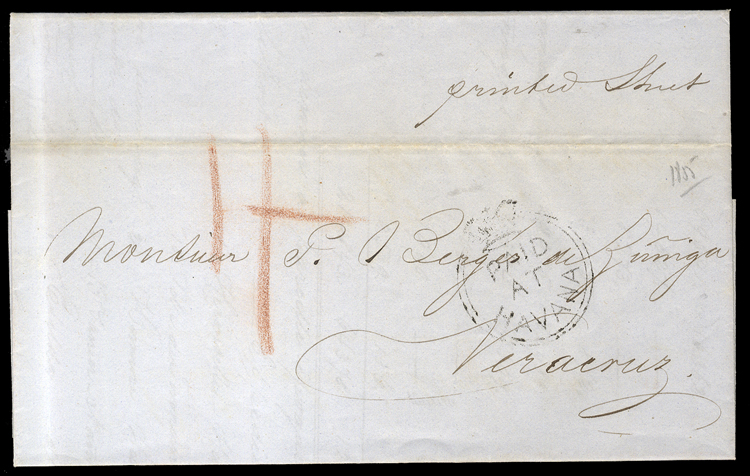 printed Sheet
4
Monsieur P. J Berges de Zúñiga
PAID
AT
HAVANA
Veracruz.